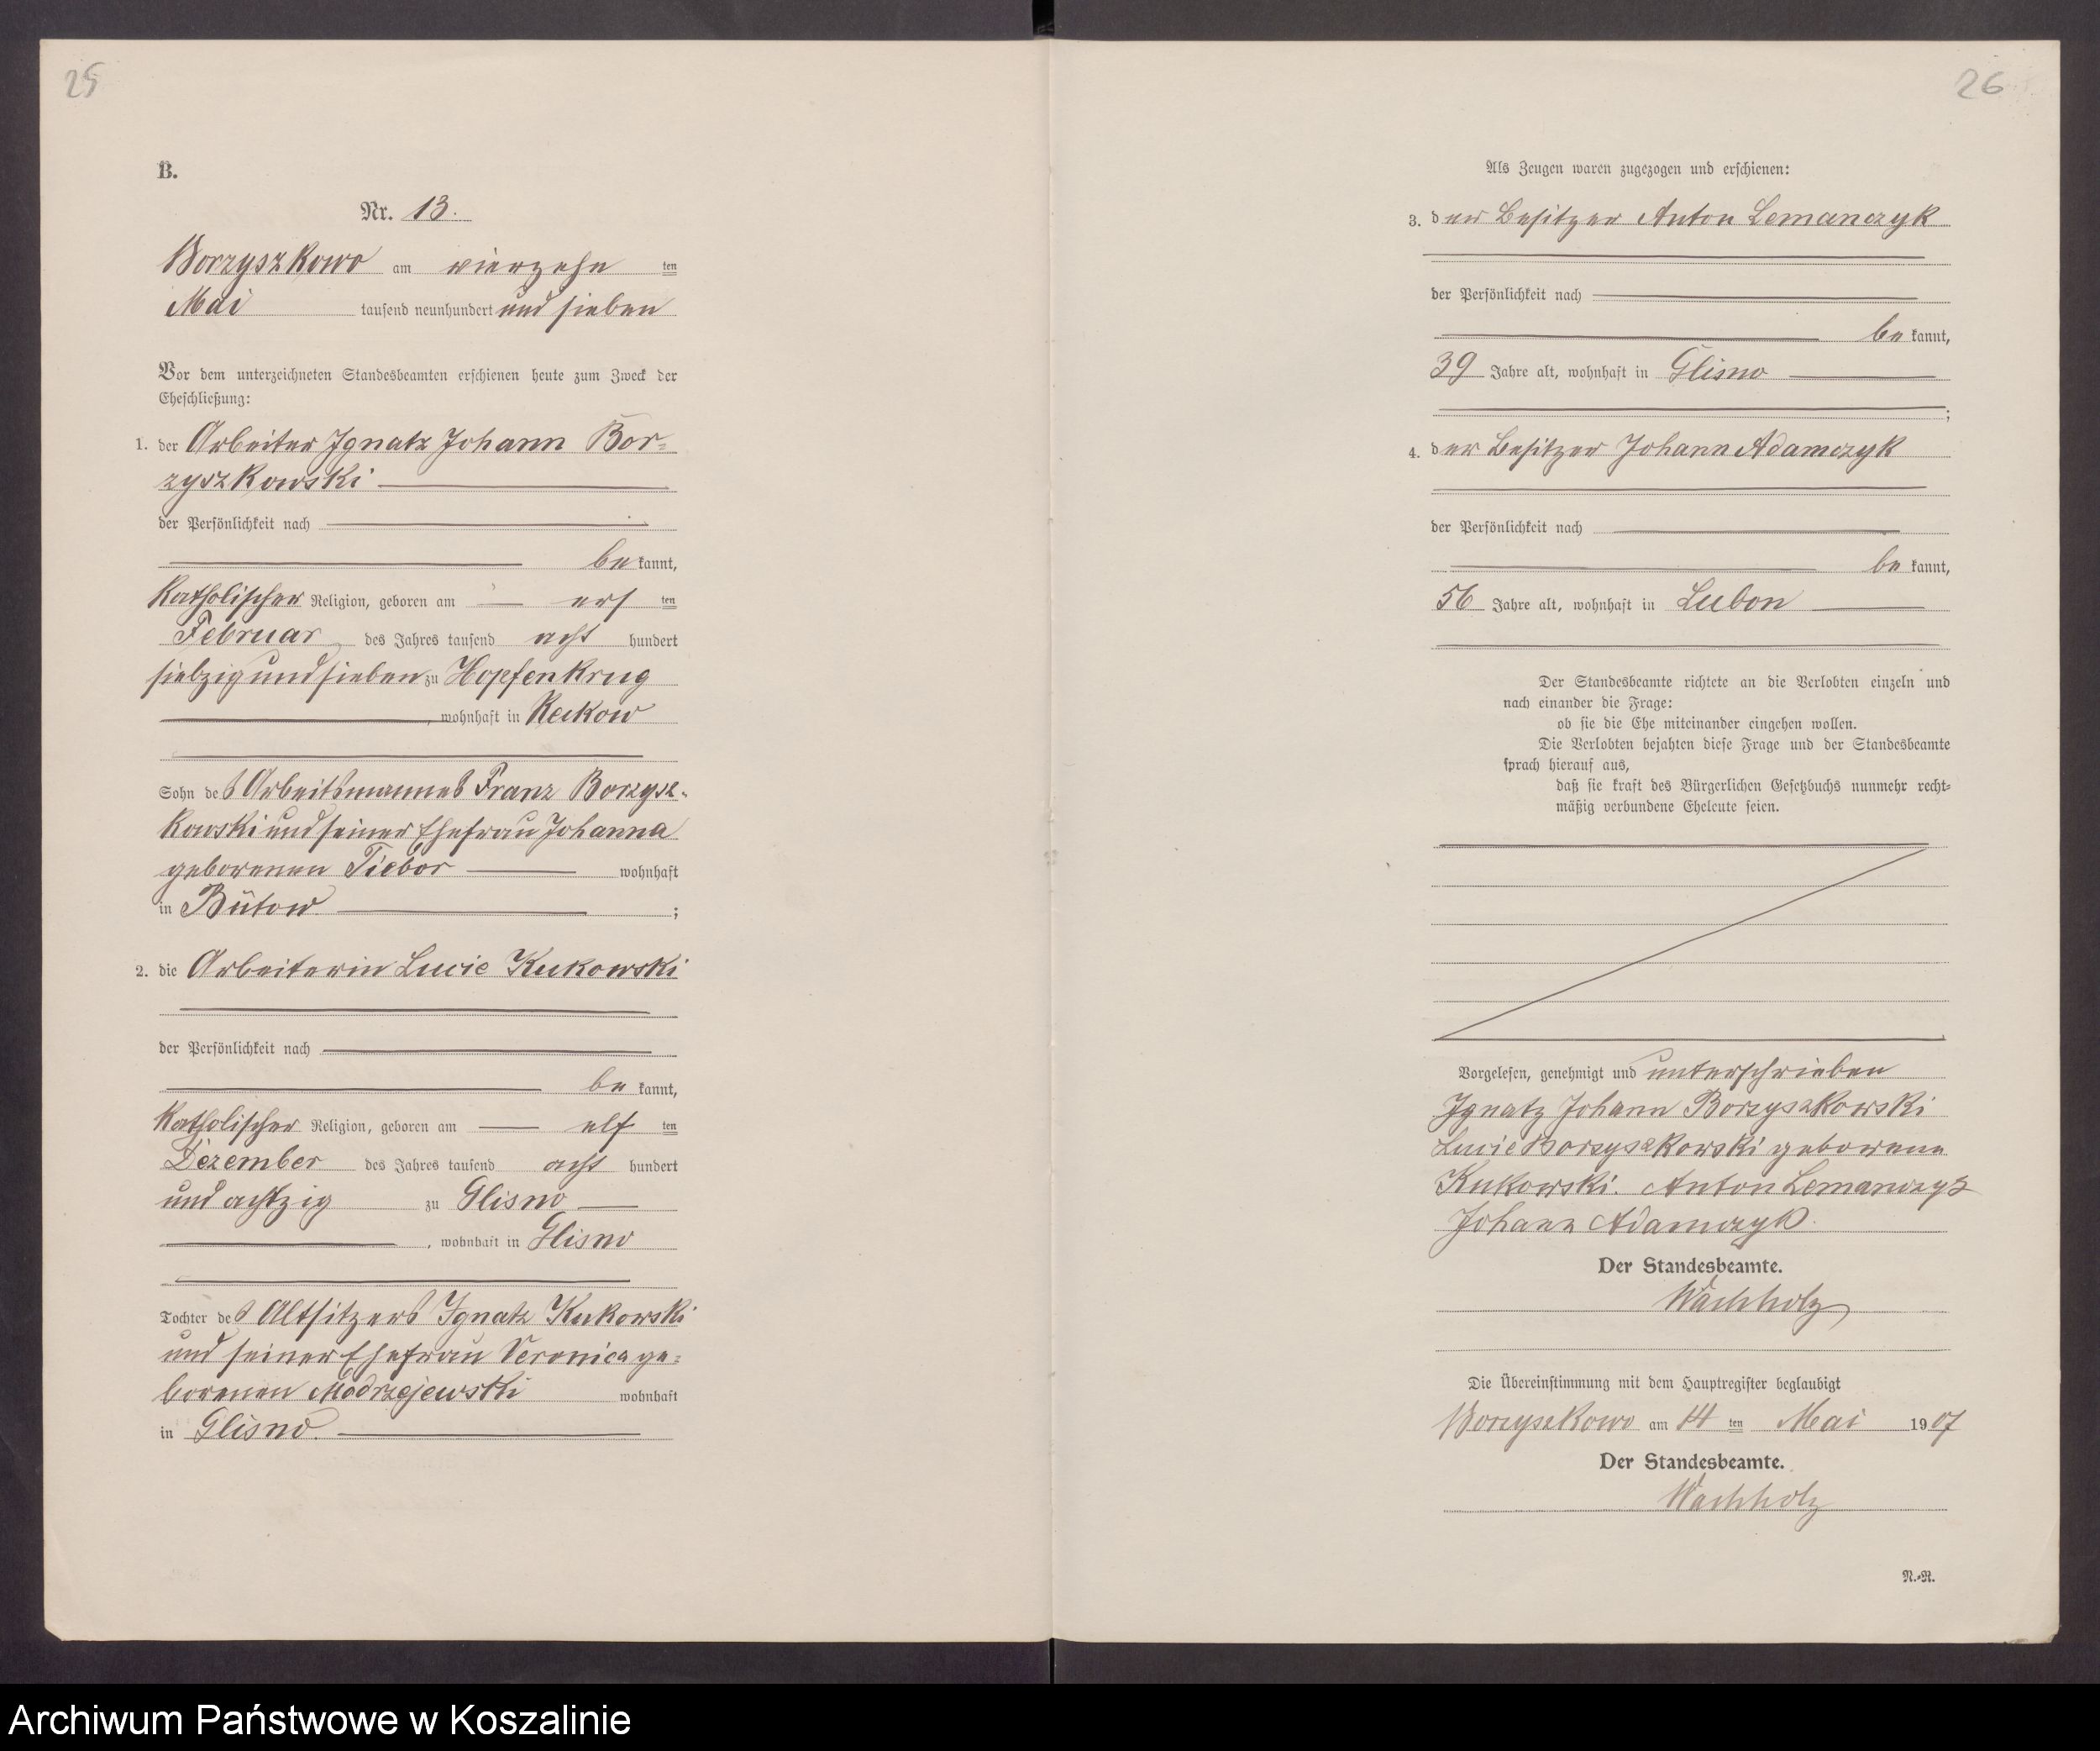 25
B.
Nr. 13.
Borzyszkowo am vierzehn ten
Mai tausend neunhundert und sieben
Vor dem unterzeichneten Standesbeamten erschienen heute zum Zweck der
Eheschließung:
1. der Arbeiter Ignatz Johann Bor-
zyszkowski
der Persönlichkeit nach
be kannt,
katholischer Religion, geboren am ers ten
Februar des Jahres tausend acht hundert
siebzig und sieben zu Hopfenkrug
, wohnhaft in Reckow
Sohn des Arbeitsmannes Franz Borzysz-
kowski und seiner Ehefrau Johanna
geborenen Tiebor wohnhaft
in Bütow ;
2. die Arbeiterin Lucie Kukowski
der Persönlichkeit nach
be kannt,
katholischer Religion, geboren am elf ten
Dezember des Jahres tausend acht hundert
und achtzig zu Glisno
, wohnhaft in Glisno
Tochter des Altsitzers Ignatz Kukowski
und seiner Ehefrau Veronica ge-
borenen Modrzejewski wohnhaft
in Glisno.
26
Als Zeugen waren zugezogen und erschienen:
3. der Besitzer Anton Lemanczyk
der Persönlichkeit nach
be kannt,
39 Jahre alt, wohnhaft in Glisno
;
4. der Besitzer Johann Adamczyk
der Persönlichkeit nach
be kannt,
56 Jahre alt, wohnhaft in Lubon
Der Standesbeamte richtete an die Verlobten einzeln und
nach einander die Frage:
ob sie die Ehe miteinander eingehen wollen.
Die Verlobten bejahten diese Frage und der Standesbeamte
sprach hierauf aus,
daß sie kraft des Bürgerlichen Gesetzbuchs nunmehr recht-
mäßig verbundene Eheleute seien.
Vorgelesen, genehmigt und unterschrieben
Ignatz Johann Borzyszkowski
Lucie Borzyszkowski geborene
Kukowski. Anton Lemanczyk
Johann Adamczyk.
Der Standesbeamte.
Wachholz
Die Übereinstimmung mit dem Hauptregister beglaubigt
Borzyszkowo am 14 ten Mai 1907
Der Standesbeamte.
Wachholz
N.-N.
Archiwum Państwowe w Koszalinie